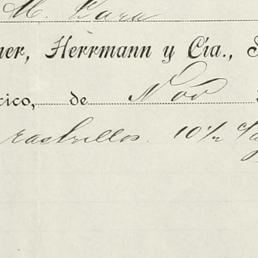 M. Lara
ner, Herrmann y Cía., S
ico, de Nov
rastrillos. 10½